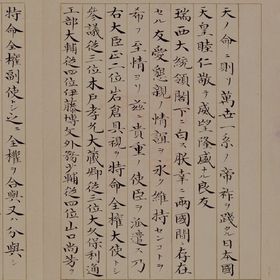 天ノ命ニ則リ萬世一系ノ帝祚ヲ踐タル日本國
天皇睦仁敬テ威望隆盛ナル良友
瑞西大統領閣下ニ白ス朕幸ニ兩國間ニ存在
セル友愛懇親ノ情誼ヲ永ク維持センコトヲ
希フノ至情ヨリ茲ニ貴重ノ使臣ヲ派遣シ乃
右大臣正二位岩倉具視ヲ特命全權大使トシ
參議從三位木戸孝允大藏卿從三位大久保利通
工部大輔從四位伊藤博文外務少輔從四位山口尚芳ヲ
特命全權副使トシ之ニ全權ヲ合與又ハ分與シ